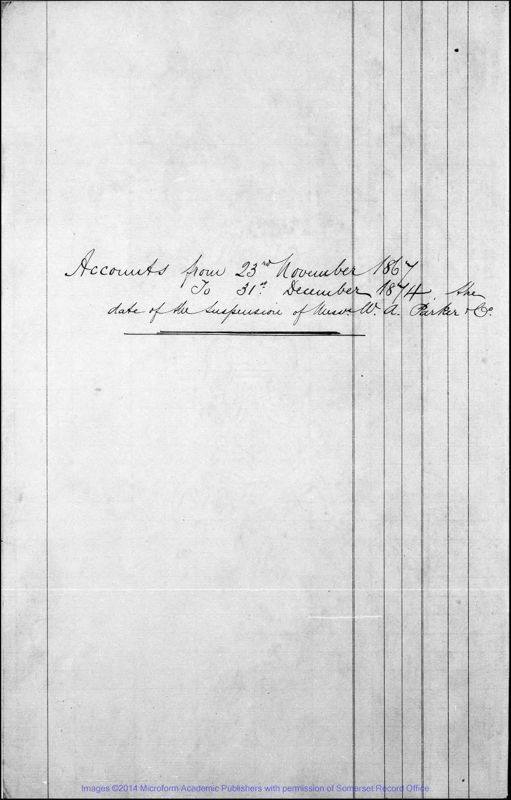 Accounts from 23rd November 1867
To 31st December 1874, the
date of the Suspension of Messrs W. A. Parker & Co.
Images ©2014 Microform Academic Publishers with permission of Somerset Record Office